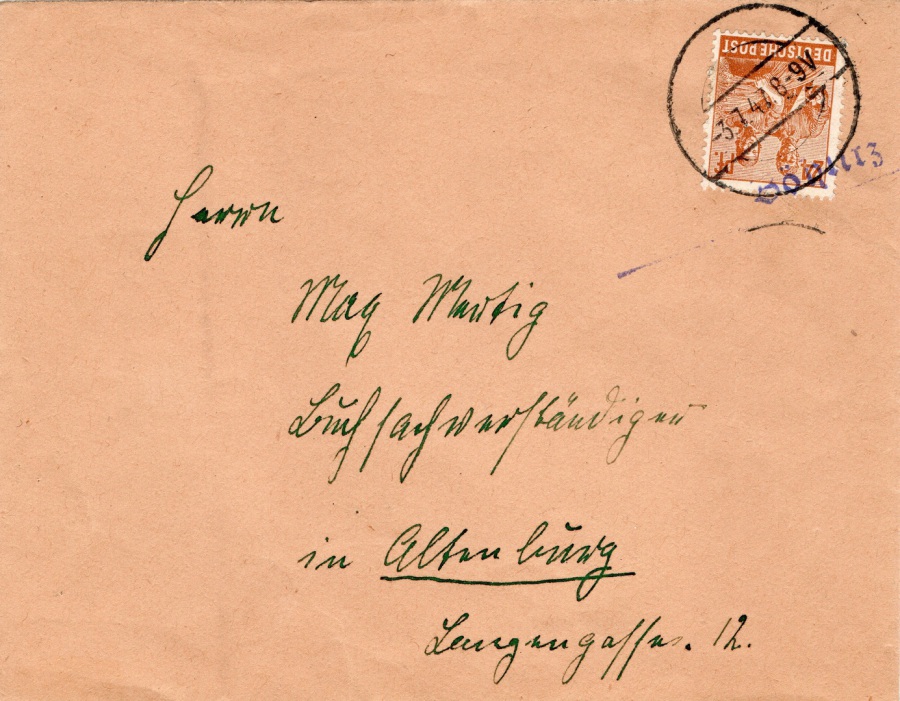 DEUTSCHE POST
24 PF.
-3.7.47.8-9V
Herrn
Max Mertig
Buchsachverständigen
in Altenburg
Langengasse. 12.